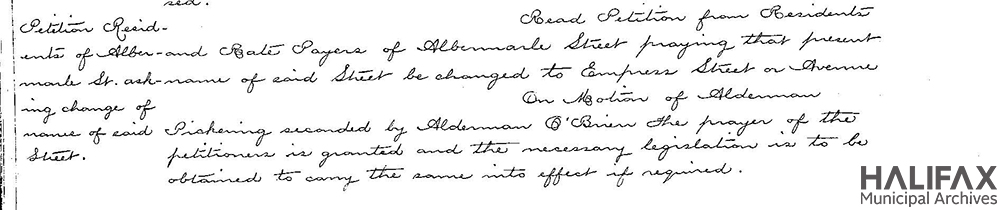 sed.
Petition Resid-
ents of Alber-
marle St. ask-
ing change of
name of said
Street.
Read Petition from Residents
and Rate Payers of Albermarle Street praying that present
name of said Street be changed to Empress Street or Avenue
On Motion of Alderman
Pickering seconded by Alderman O'Brien the prayer of the
petitioners is granted and the necessary legislation is to be
obtained to carry the same into effect if required.
HALIFAX
Municipal Archives